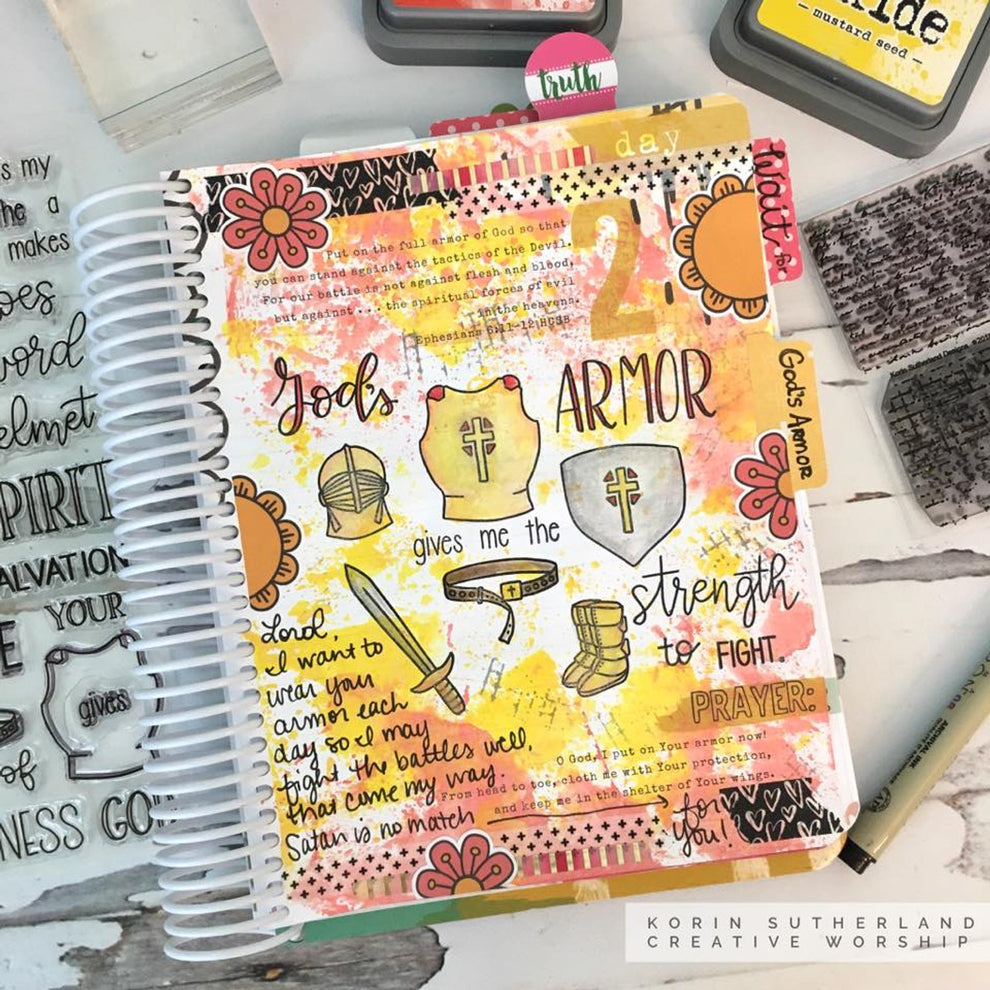 ide
— mustard seed —
truth
day
2
wait for
God's Armor
Put on the full armor of God so that
you can stand against the tactics of the Devil.
For our battle is not against flesh and blood,
but against . . . the spiritual forces of evil
in the heavens.
Ephesians 6:11-12 HCSB
God's ARMOR
gives me the
strength
to FIGHT.
Lord,
I want to
wear your
armor each
day so I may
fight the battles well,
that come my way.
Satan is no match
for
you!
PRAYER:
O God, I put on Your armor now!
From head to toe, cloth me with Your protection,
and keep me in the shelter of Your wings.
's my
the a
makes
oes
word
elmet
SPIRIT
ALVATION
YOUR
E
gives
of
NESS GO
KORIN SUTHERLAND
CREATIVE WORSHIP